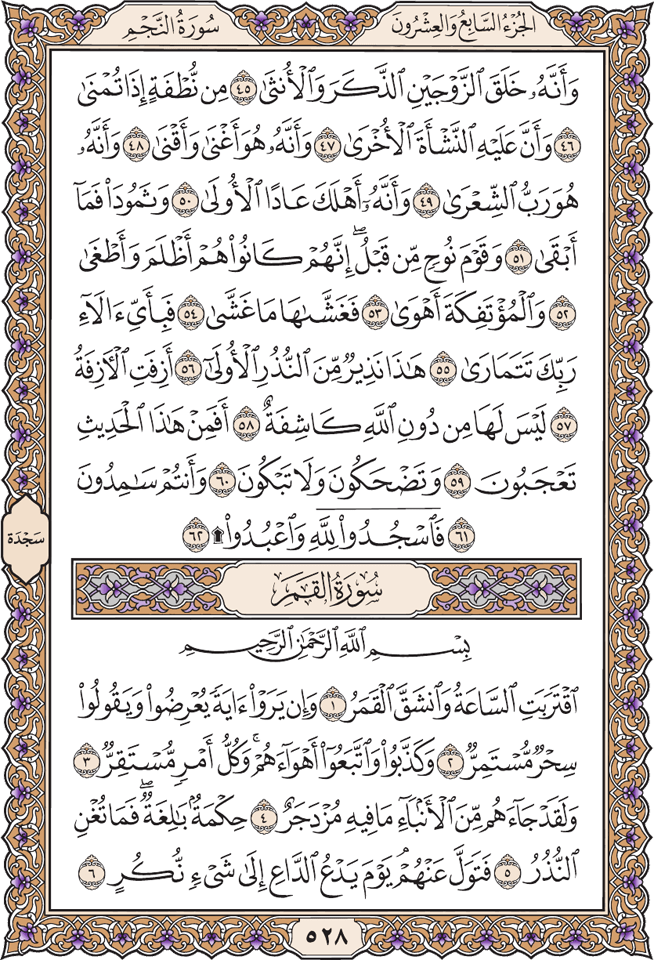 الجزء السابع والعشرون
سورة النجم
وَأَنَّهُۥ خَلَقَ ٱلزَّوْجَيْنِ ٱلذَّكَرَ وَٱلْأُنثَىٰ ٤٥ مِن نُّطْفَةٍ إِذَا تُمْنَىٰ
٤٦ وَأَنَّ عَلَيْهِ ٱلنَّشْأَةَ ٱلْأُخْرَىٰ ٤٧ وَأَنَّهُۥ هُوَ أَغْنَىٰ وَأَقْنَىٰ ٤٨ وَأَنَّهُۥ
هُوَ رَبُّ ٱلشِّعْرَىٰ ٤٩ وَأَنَّهُۥٓ أَهْلَكَ عَادًا ٱلْأُولَىٰ ٥٠ وَثَمُودَا۟ فَمَآ
أَبْقَىٰ ٥١ وَقَوْمَ نُوحٍ مِّن قَبْلُ ۖ إِنَّهُمْ كَانُوا۟ هُمْ أَظْلَمَ وَأَطْغَىٰ
٥٢ وَٱلْمُؤْتَفِكَةَ أَهْوَىٰ ٥٣ فَغَشَّىٰهَا مَا غَشَّىٰ ٥٤ فَبِأَىِّ ءَالَآءِ
رَبِّكَ تَتَمَارَىٰ ٥٥ هَٰذَا نَذِيرٌ مِّنَ ٱلنُّذُرِ ٱلْأُولَىٰٓ ٥٦ أَزِفَتِ ٱلْءَازِفَةُ
٥٧ لَيْسَ لَهَا مِن دُونِ ٱللَّهِ كَاشِفَةٌ ٥٨ أَفَمِنْ هَٰذَا ٱلْحَدِيثِ
تَعْجَبُونَ ٥٩ وَتَضْحَكُونَ وَلَا تَبْكُونَ ٦٠ وَأَنتُمْ سَٰمِدُونَ
٦١ فَٱسْجُدُوا۟ لِلَّهِ وَٱعْبُدُوا۟ ۩ ٦٢
سجدة
سورة القمر
بِسْمِ ٱللَّهِ ٱلرَّحْمَٰنِ ٱلرَّحِيمِ
ٱقْتَرَبَتِ ٱلسَّاعَةُ وَٱنشَقَّ ٱلْقَمَرُ ١ وَإِن يَرَوْا۟ ءَايَةً يُعْرِضُوا۟ وَيَقُولُوا۟
سِحْرٌ مُّسْتَمِرٌّ ٢ وَكَذَّبُوا۟ وَٱتَّبَعُوٓا۟ أَهْوَآءَهُمْ ۚ وَكُلُّ أَمْرٍ مُّسْتَقِرٌّ ٣
وَلَقَدْ جَآءَهُم مِّنَ ٱلْأَنۢبَآءِ مَا فِيهِ مُزْدَجَرٌ ٤ حِكْمَةٌۢ بَٰلِغَةٌ ۖ فَمَا تُغْنِ
ٱلنُّذُرُ ٥ فَتَوَلَّ عَنْهُمْ ۘ يَوْمَ يَدْعُ ٱلدَّاعِ إِلَىٰ شَىْءٍ نُّكُرٍ ٦
٥٢٨